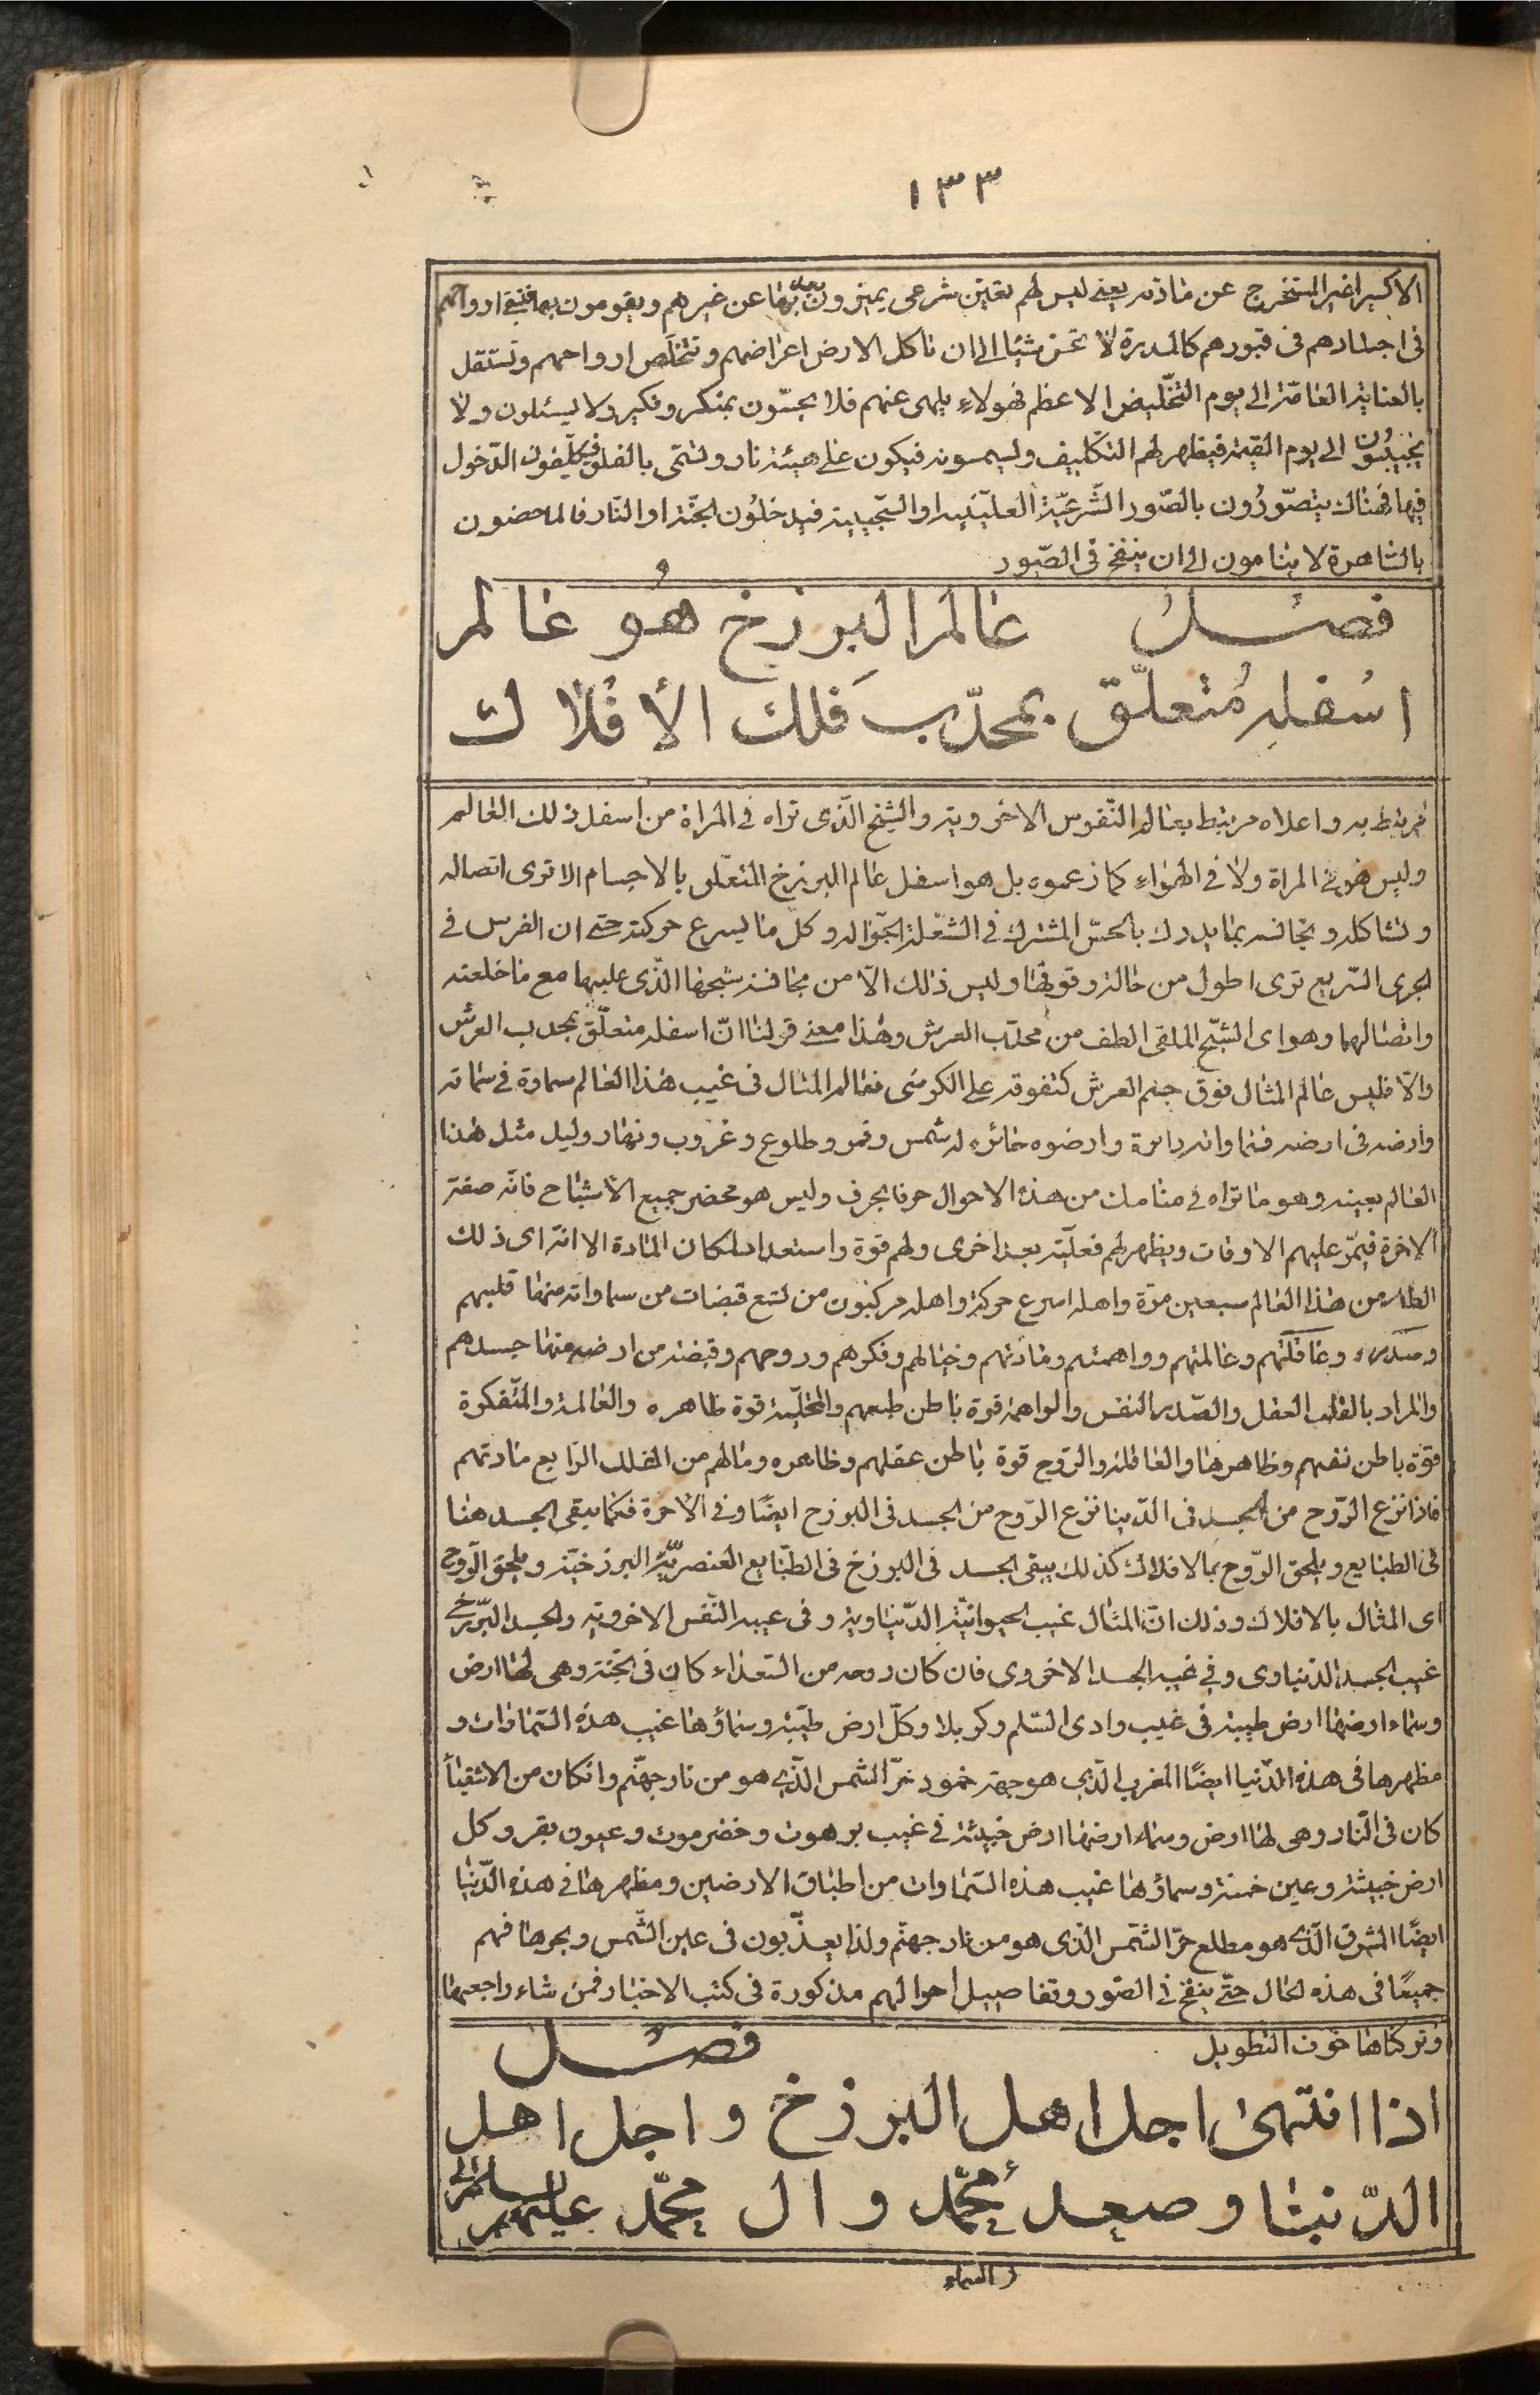 ١٣٣
الاكسير الغير المستخرج عن مادته يعني ليس لهم تعين شرعي يميزون بها عن غيرهم ويقومون بها فتبقى ارواحهم
في اجسادهم في قبورهم كالمدرة لا تحس شيئا الى ان تاكل الارض اعراضهم وتتخلّص ارواحهم وتستقل
بالعناية العامّة الى يوم التخليص الاعظم فهولاء يلهى عنهم فلا يحسّون بمنكر ونكير ولا يسئلون ولا
يجيبون الى يوم القيمة فيظهر لهم التكليف وليسمونه فيكون على هيئة نار وتسمّى بالفلق فيكلّفون الدّخول
فيها فهناك يتصوّرون بالصّور الشّرعيّة العليّينيه او السّجينية فيدخلون الجنّة او النّار فالماحضون
بالساهرة لا ينامون الى ان ينفخ في الصّور
فصل عالم البرزخ هو عالم
اسفله متعلّق بمحدّب فلك الأفلاك
مرتبط به واعلاه مرتبط بعالم النّفوس الاخروية والشبح الّذي تراه في المراة من اسفل ذلك العالم
وليس هو في المراة ولا في الهواء كما زعموه بل هو اسفل عالم البرزخ المتعلّق بالاجسام الا ترى اتصاله
وتشاكله وتجانسه بما يدرك بالحسّ المشترك في الشّعلة الجوّالة وكلّ ما يسرع حركته حتى ان الفرس في
الجرى السّريع ترى اطول من حالة وقوفها وليس ذلك الّا من مجانسة شبحها الّذي عليها مع ما خلعته
واتصالهما وهو اى الشبح الملقى الطف من محدّب العرش وهذا معنى قولنا انّ اسفله متعلّق بمحدب العرش
والّا فليس عالم المثال فوق جسم العرش كتفوقه على الكرسى فعالم المثال في غيب هذا العالم سماوة في سمائه
وارضه في ارضه فسماواته دائرة وارضوه حائره له شمس وقمر وطلوع وغروب ونهار وليل مثل هذا
العالم بعينه وهو ما تراه في منامك من هذه الاحوال حرفا بحرف وليس هو محضر جميع الاشباح فانّه صفة
الاخرة فيمرّ عليهم الاوقات ويظهر لهم فعليّة بعد اخرى ولهم قوة واستعداد لمكان المادة الا انّه اى ذلك
العالم من هذا العالم سبعين مرّة واهله اسرع حركة واهله مركبون من تسع قبضات من سماواته منها قلبهم
وصدرهم وعاقلتهم وعالمتهم وواهمتهم ومادتهم وخيالهم وفكرهم وروحهم وقبضة من ارضه منها جسدهم
والمراد بالقلب العقل والصّدر النفس والواهمة قوة باطن طبعهم والمتخيّلة قوة ظاهره والعالمة والمتفكرة
قوّة باطن نفسهم وظاهرها والعاقلة والرّوح قوة باطن عقلهم وظاهره ومالهم من الفلك الرّابع مادتهم
فاذا نزع الرّوح من الجسد في الدّنيا نزع الرّوح من الجسد في البرزخ ايضًا وفي الاخرة فكما يبقى الجسد هنا
في الطبايع ويلحق الرّوح بالافلاك كذلك يبقى الجسد في البرزخ في الطبّايع العنصريّة البرزخيّة ويلحق الرّوح
اى المثال بالافلاك وذلك انّ المثال غيب الحيوانيّة الدّنياوية وفي غيبه النّفس الاخروية والجسد البرزخى
غيب الجسد الدّنياوى وفي غيبه الجسد الاخروى فان كان روحه من السّعداء كان في الجنّة وهي لها ارض
وسماء ارضها ارض طيبة في غيب وادى السّلم وكربلا وكلّ ارض طيّبة وسماؤها غيب هذه السّماوات و
مظهرها في هذه الدّنيا ايضًا المغرب الّذي هو جهة خمود حرّ الشمس الّذي هو من نار جهنّم وان كان من الاشقياء
كان في النّار وهي لها ارض وسماء ارضها ارض خبيثة في غيب برهوت وحضرموت وعيون بقر وكل
ارض خبيثة وعين حمئة وسماؤها غيب هذه السّماوات من اطباق الارضين ومظهرها في هذه الدّنيا
ايضًا المشرق الّذي هو مطلع حرّ الشّمس الّذي هو من نار جهنّم ولذا يعذّبون في عين الشّمس وبحرها فهم
جميعًا في هذه الحال حتّى ينفخ في الصّور وتفاصيل احوالهم مذكورة في كتب الاخبار فمن شاء راجعها
وتركناها خوف التطويل فصل
اذا انتهى اجل اهل البرزخ واجل اهل
الدّنيا وصعد محمّد وال محمّد عليهم السلام الى
السماء